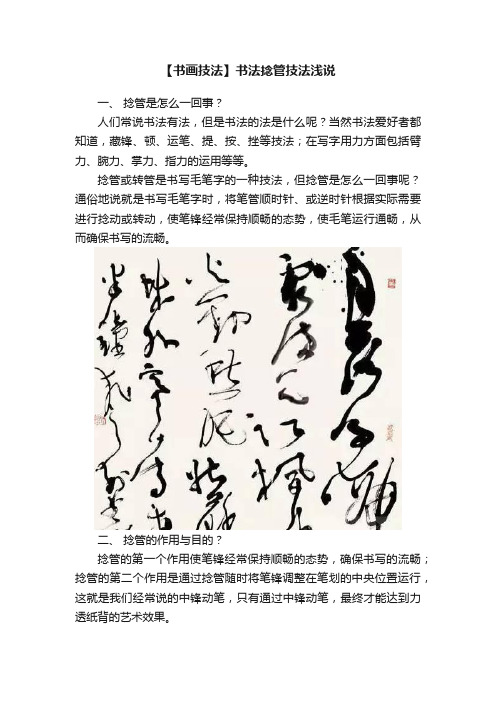 【书画技法】书法捻管技法浅说
一、 捻管是怎么一回事？
人们常说书法有法，但是书法的法是什么呢？当然书法爱好者都
知道，藏锋、顿、运笔、提、按、挫等技法；在写字用力方面包括臂
力、腕力、掌力、指力的运用等等。
捻管或转管是书写毛笔字的一种技法，但捻管是怎么一回事呢？
通俗地说就是书写毛笔字时，将笔管顺时针、或逆时针根据实际需要
进行捻动或转动，使笔锋经常保持顺畅的态势，使毛笔运行通畅，从
而确保书写的流畅。
月落乌啼
霜满天江枫
火对愁眠姑苏
城外寒山寺
半钟声
二、 捻管的作用与目的？
捻管的第一个作用使笔锋经常保持顺畅的态势，确保书写的流畅；
捻管的第二个作用是通过捻管随时将笔锋调整在笔划的中央位置运行，
这就是我们经常说的中锋动笔，只有通过中锋动笔，最终才能达到力
透纸背的艺术效果。